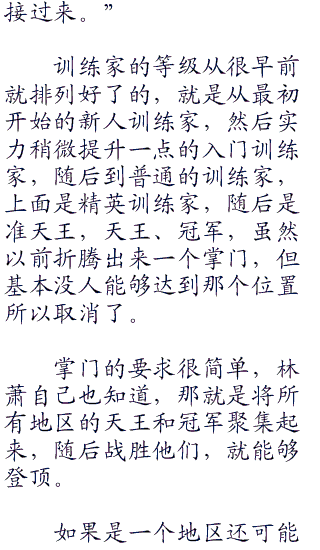 接过来。”
训练家的等级从很早前
就排列好了的，就是从最初
开始的新人训练家，然后实
力稍微提升一点的入门训练
家，随后到普通的训练家，
上面是精英训练家，随后是
准天王，天王、冠军，虽然
以前折腾出来一个掌门，但
基本没人能够达到那个位置
所以取消了。
掌门的要求很简单，林
萧自己也知道，那就是将所
有地区的天王和冠军聚集起
来，随后战胜他们，就能够
登顶。
如果是一个地区还可能